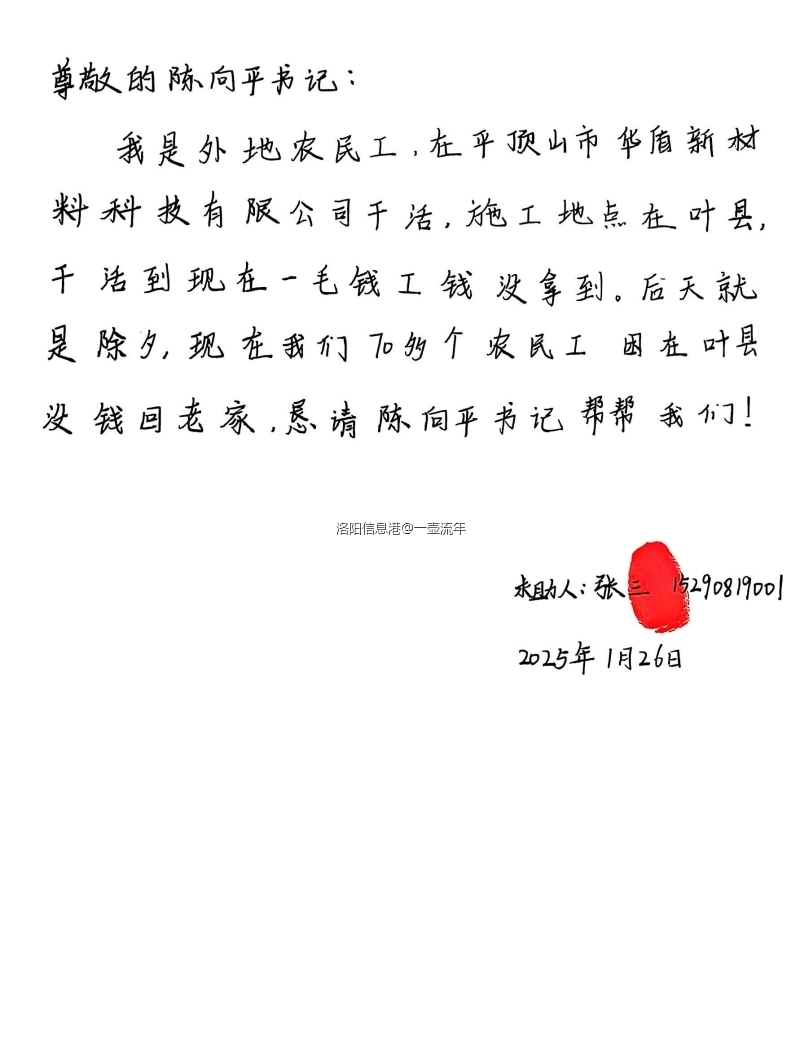 尊敬的陈向平书记：
我是外地农民工，在平顶山市华盾新材
料科技有限公司干活，施工地点在叶县，
干活到现在一毛钱工钱没拿到。后天就
是除夕，现在我们70多个农民工困在叶县
没钱回老家，恳请陈向平书记帮帮我们！
洛阳信息港@一壶流年
求助人：张三 15290819001
2025年1月26日